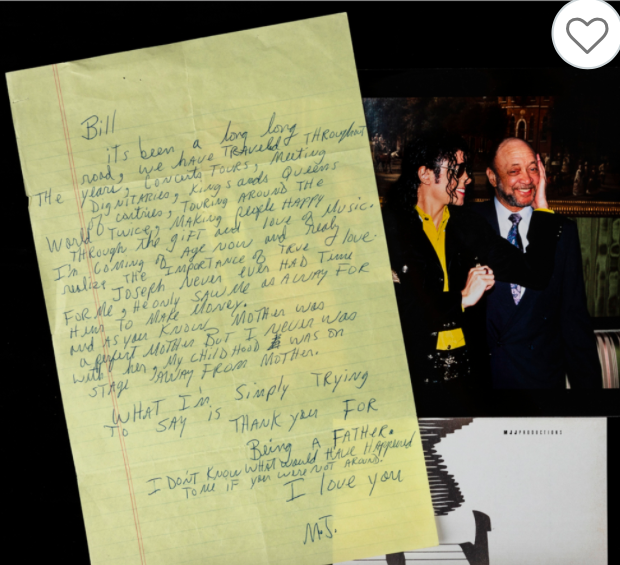 Bill
its been a long long
road, we HAVE TRAVELED THROUGHOUT
THE years, Concerts Tours, Meeting
DIGNITARIES, Kings and Queens
of contries, Touring AROUND THE
World TWICE, MAKING People HAPPY
THROUGH THE gift and love of Music.
I'm coming of Age now and realy
realize THE Importance of TRUE love.
Joseph Never ever HAD Time
FOR Me, He only SAW Me AS A WAY FOR
Him To Make Money.
and As you Know, Mother was
a perfect Mother But I never was
with her, My CHILDHOOD WAS on
STAGE AWAY FROM MOTHER.
WHAT I'm Simply TRYING
TO SAY is THANK you FOR
Being A FATHER.
I DON'T Know WHAT would HAVE HAppened
To Me if you were NOT AROUND.
I love you
M.J.
MJJPRODUCTIONS